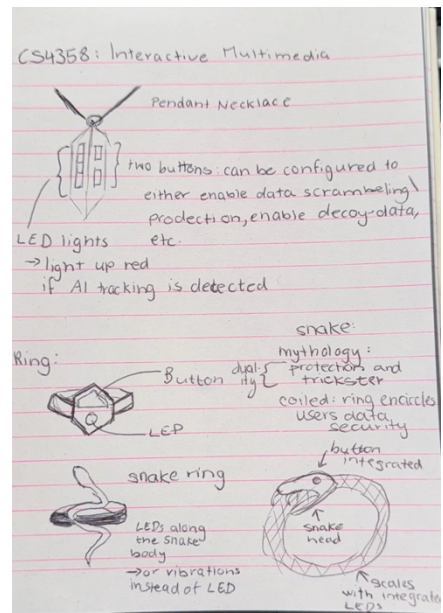 CS4358: Interactive Multimedia
Pendant Necklace
two buttons: can be configured to
either enable data scrambeling\
prodection, enable decoy-data,
etc.
LED lights
→ light up red
if AI tracking is detected
Ring:
Button
LED
snake:
mythology:
dual-
ity
protection and
trickster
coiled: ring encircles
users data
security
snake ring
LEDs along
the snake
body
→ or vibrations
instead of LED
button
integrated
snake
head
scales
with integrated
LEDs